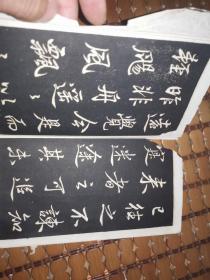 已往之不諫知
來者之可追
實迷途其未
遠覺今是而
昨非舟遥〻以
輕颺風飄